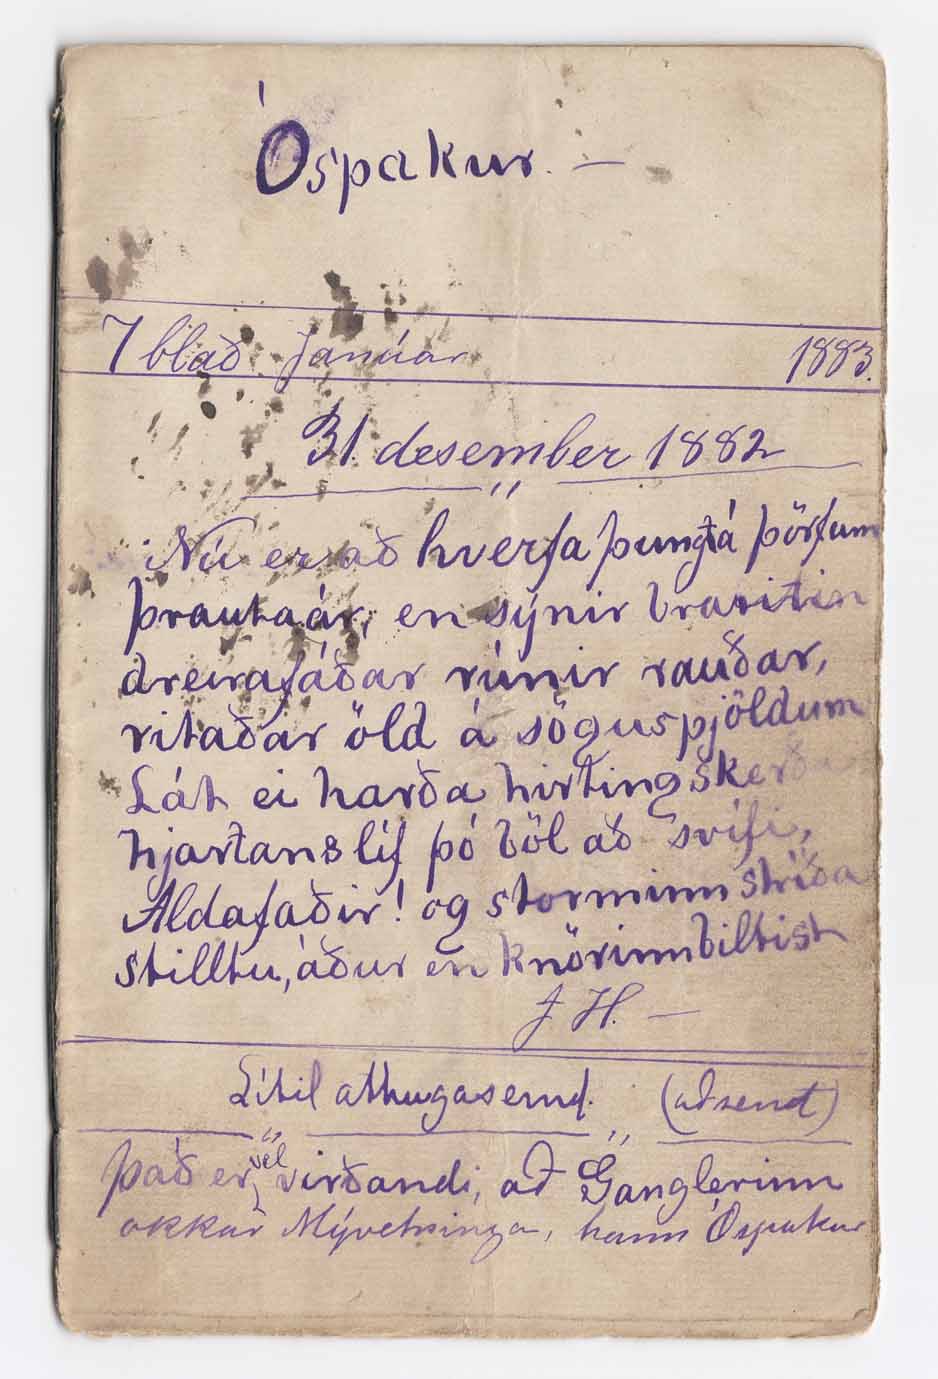 Óspakur. —
7 blað. Janúar 1883.
31. desember 1882
Nú er að hverfa þungt á þörfum
þrauta ár, en sýnir brautin
dreirafáðar rúnir rauðar,
ritaðar öld á söguspjöldum
Lát ei harða hirting skerða
hjartans líf þó böl að svífi,
Aldafaðir! og storminn stríða
stilltu, áður en knörinn biltist
J H. —
Lítil athugasemd. (aðsent)
Það er vel virðandi, að Ganglerinn
okkar Mývetninga, hann Óspakur